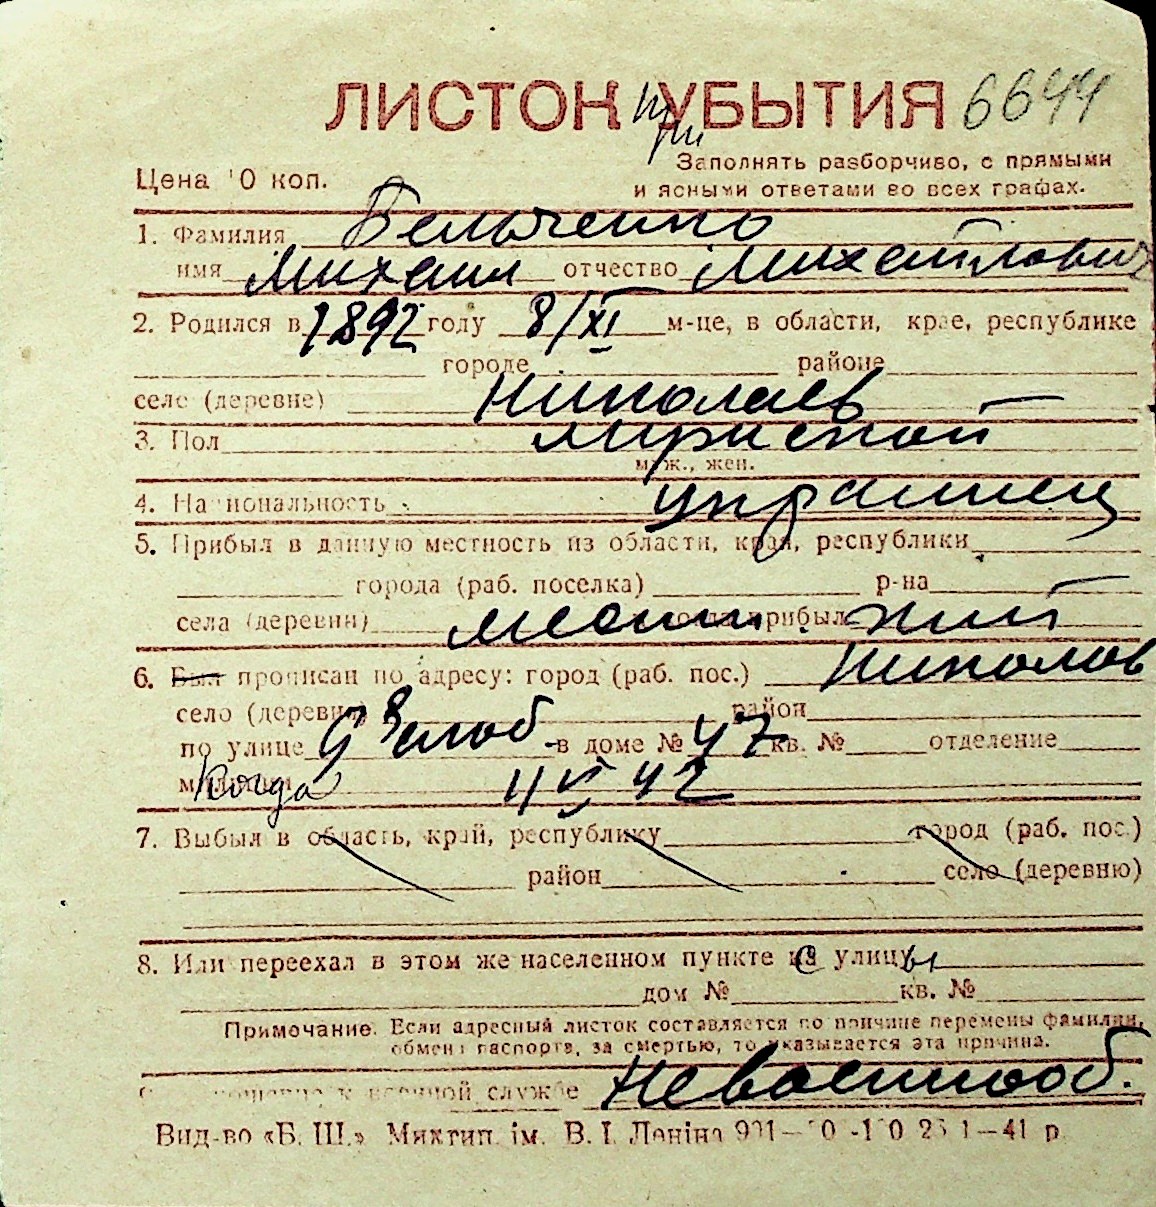 ЛИСТОК при УБЫТИЯ 6644
Заполнять разборчиво, с прямыми
Цена 10 коп. и ясными ответами во всех графах.
1. Фамилия Бельченко
имя Михаил отчество Михайлович
2. Родился в 1892 году 8/XI м-це, в области, крае, республике
городе районе
село (деревне) Николаев
3. Пол мужской
муж., жен.
4. Национальность украинец
5. Прибыл в данную местность из области, края, республики
города (раб. поселка) р-на
села (деревни) когда прибыл
6. Был прописан по адресу: город (раб. пос.) Николаев
село (деревня) район
по улице 9 Слоб в доме № 47 кв. № отделение
милиции Когда 4 VI 42
7. Выбыл в область, край, республику город (раб. пос.)
район село (деревню)
8. Или переехал в этом же населенном пункте с улицы
дом № кв. №
Примечание. Если адресный листок составляется по причине перемены фамилии,
обмена паспорта, за смертью, то указывается эта причина.
к военной службе Невоеннооб.
Вид-во «Б. Ш.» Миктип. ім. В. І. Леніна 1—41 р.